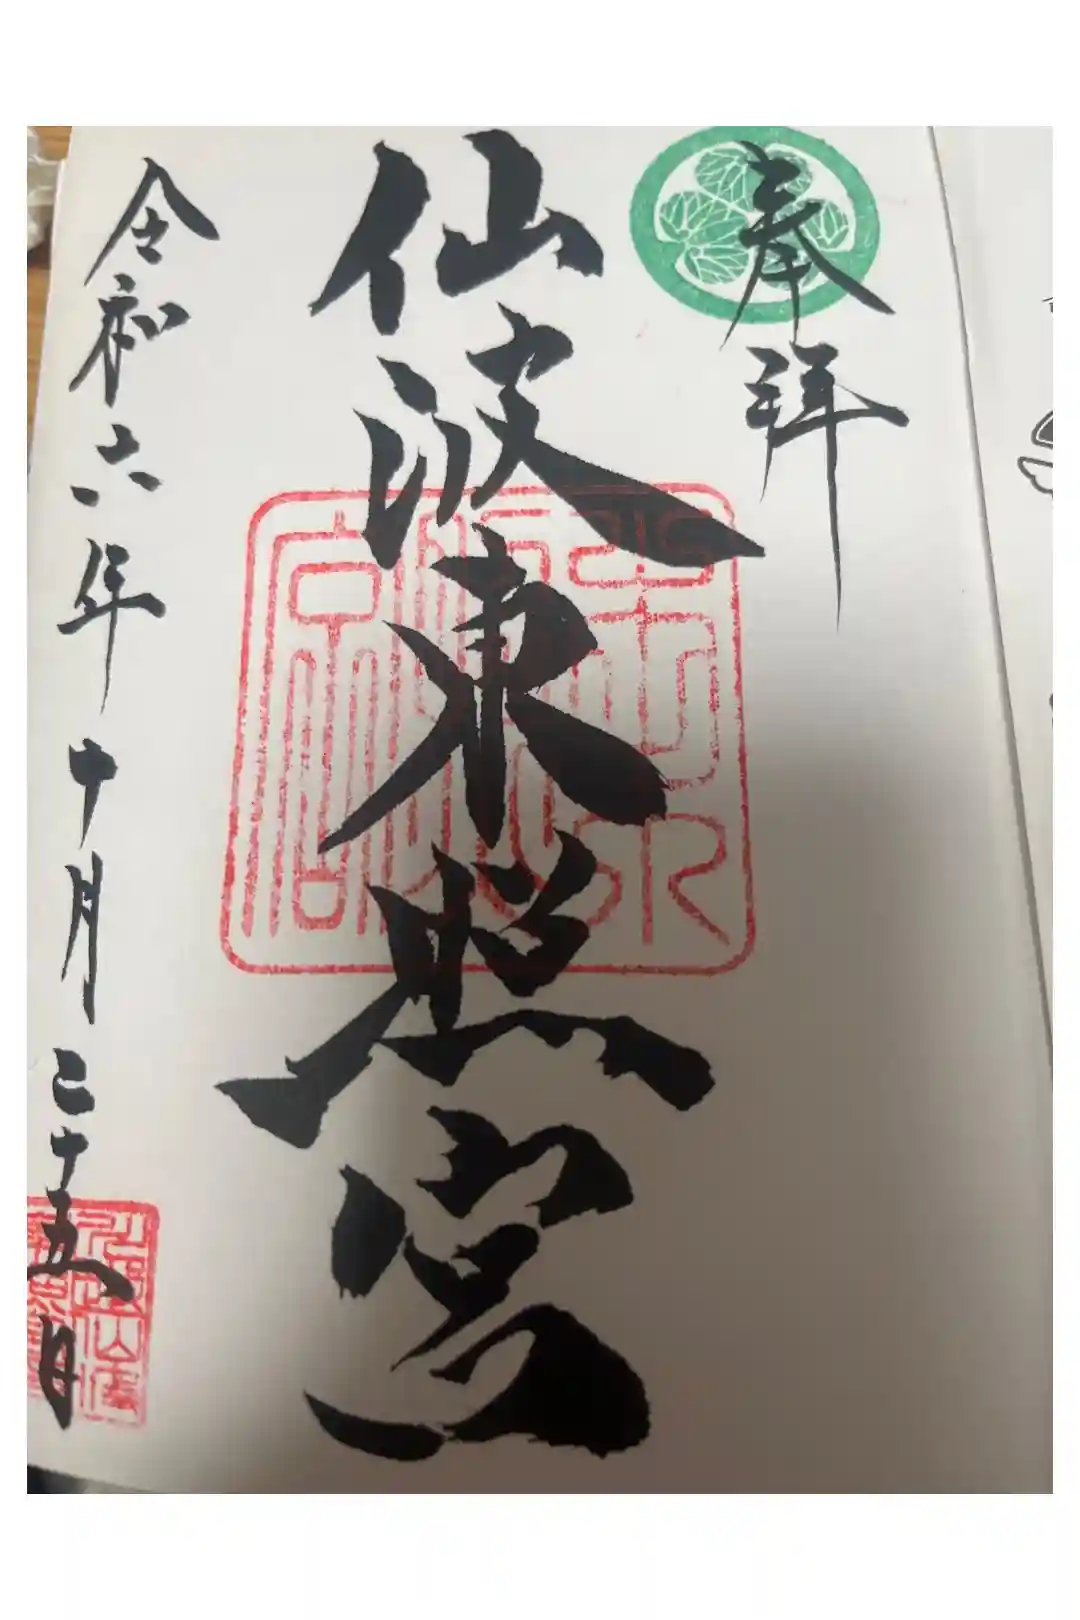 奉拝
仙波東照宮
令和六年十月二十五日